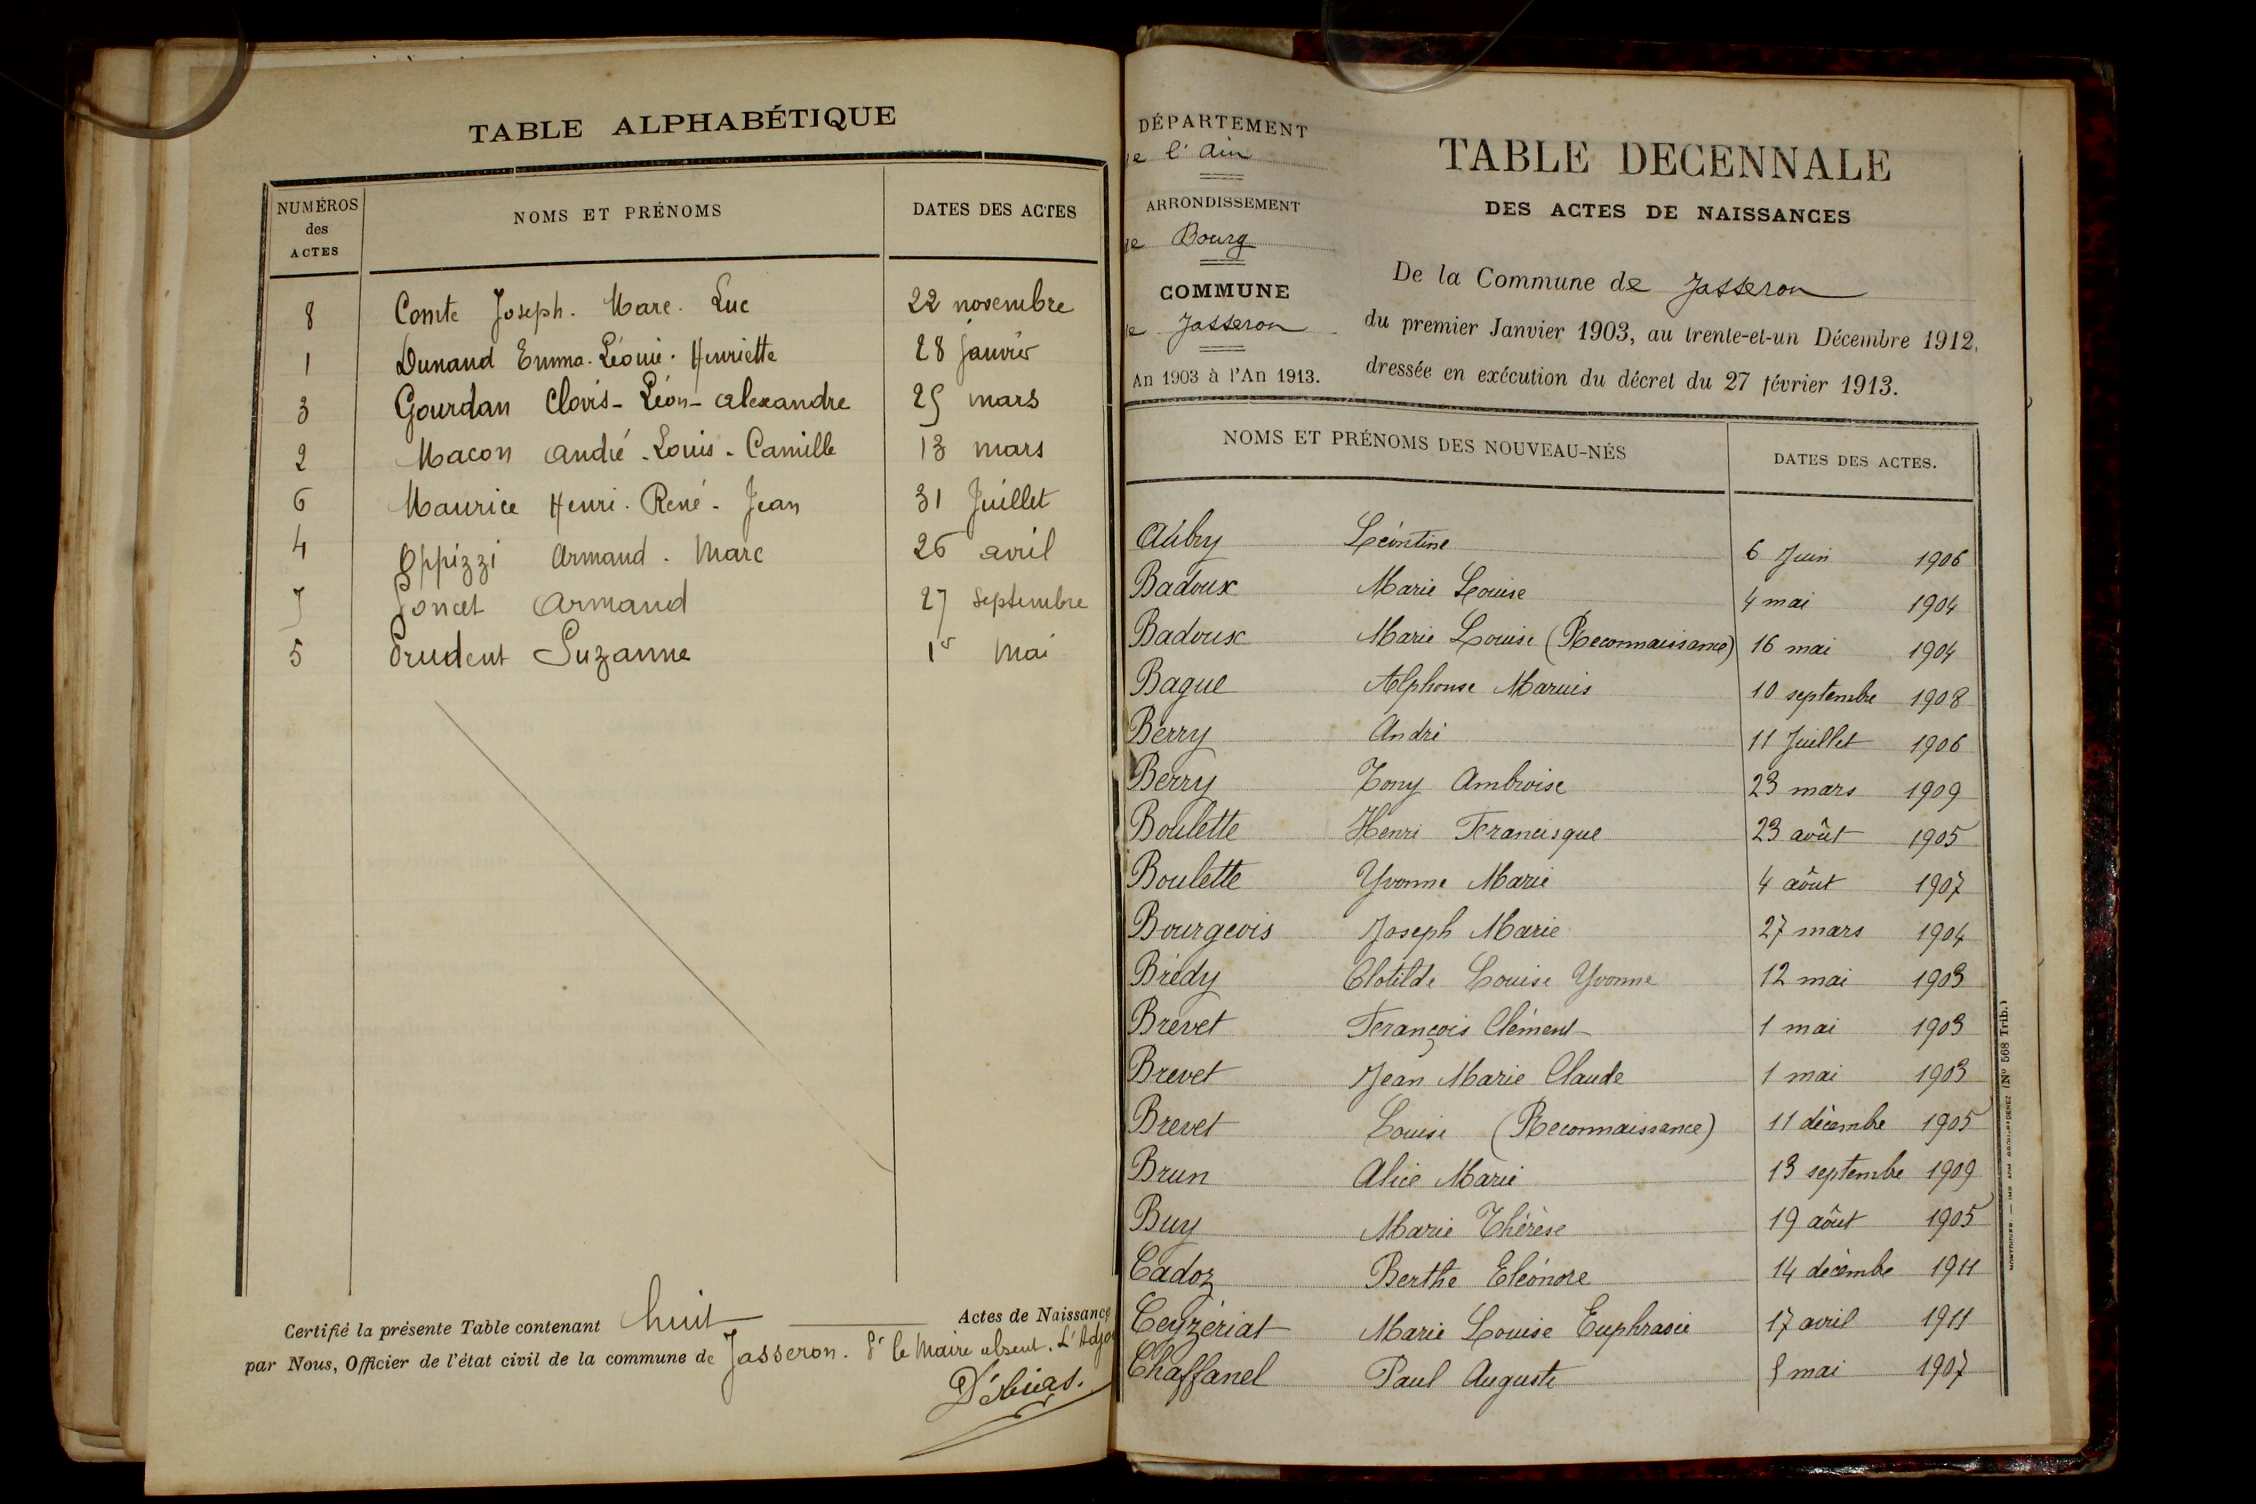 TABLE ALPHABÉTIQUE
NUMÉROS des ACTES NOMS ET PRÉNOMS DATES DES ACTES
8 Comte Joseph. Marc. Luc 22 novembre
1 Dunand Emma. Léonie. Henriette 28 janvier
3 Gourdan Clovis - Léon - alexandre 25 mars
2 Macon andré - Louis - Camille 13 mars
6 Maurice Henri. René - Jean 31 Juillet
4 Oppizzi armand. Marc 26 avril
7 Poncet armand 27 septembre
5 Prudent Suzanne 1er Mai
Certifié la présente Table contenant huit Actes de Naissance
par Nous, Officier de l'état civil de la commune de Jasseron. Pr le Maire absent. L'Adjo
DÉPARTEMENT
de l'Ain
ARRONDISSEMENT
de Bourg
COMMUNE
de Jasseron
An 1903 à l'An 1913.
TABLE DECENNALE
DES ACTES DE NAISSANCES
De la Commune de Jasseron
du premier Janvier 1903, au trente-et-un Décembre 1912,
dressée en exécution du décret du 27 février 1913.
NOMS ET PRÉNOMS DES NOUVEAU-NÉS DATES DES ACTES.
Aubry Léontine 6 Juin 1906
Badoux Marie Louise 4 mai 1904
Badoux Marie Louise (Reconnaissance) 16 mai 1904
Bague Alphonse Marius 10 septembre 1908
Berry André 11 Juillet 1906
Berry Tony Ambroise 23 mars 1909
Boulette Henri Francisque 23 août 1905
Boulette Yvonne Marie 4 aôut 1907
Bourgeois Joseph Marie 27 mars 1904
Brédy Clotilde Louise Yvonne 12 mai 1903
Brevet François Clément 1 mai 1903
Brevet Jean Marie Claude 1 mai 1903
Brevet Louise (Reconnaissance) 11 décembre 1905
Brun Alice Marie 13 septembre 1909
Buy Marie Thérèse 19 aôut 1905
Cadoz Berthe Eléonore 14 décembe 1911
Ceyzériat Marie Louise Euphrasie 17 avril 1911
Chaffanel Paul Auguste mai 1907
(No 568 Trib.)